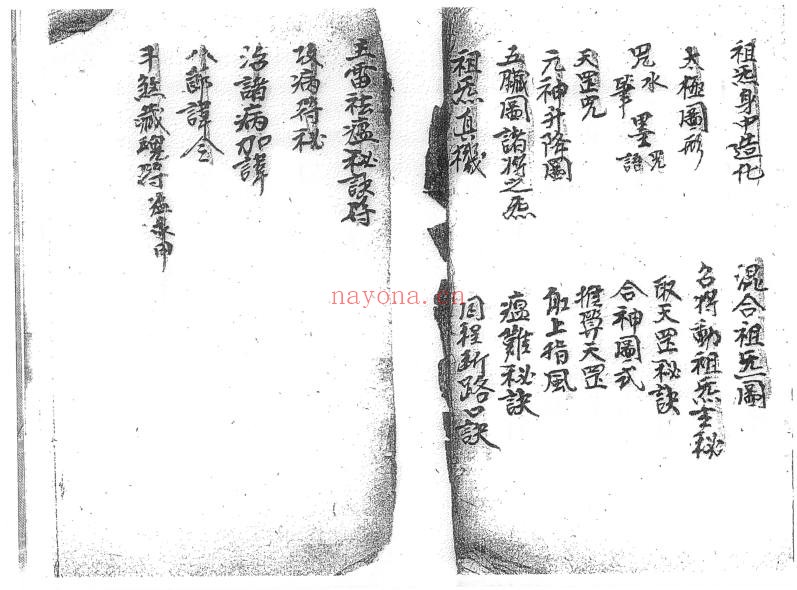 祖炁身中造化
太極圖形
咒水 墨咒
筆 語
天罡咒
元神升降圖
五臟圖諸将之炁
祖炁真機
混合祖炁圖
召将動祖炁主秘
取天罡秘訣
合神圖式
推算天罡
缸上指風
瘟難秘訣
回程断路口訣
五雷祛瘟秘訣符
治諸病加諱
八節諱令
nayona.cn